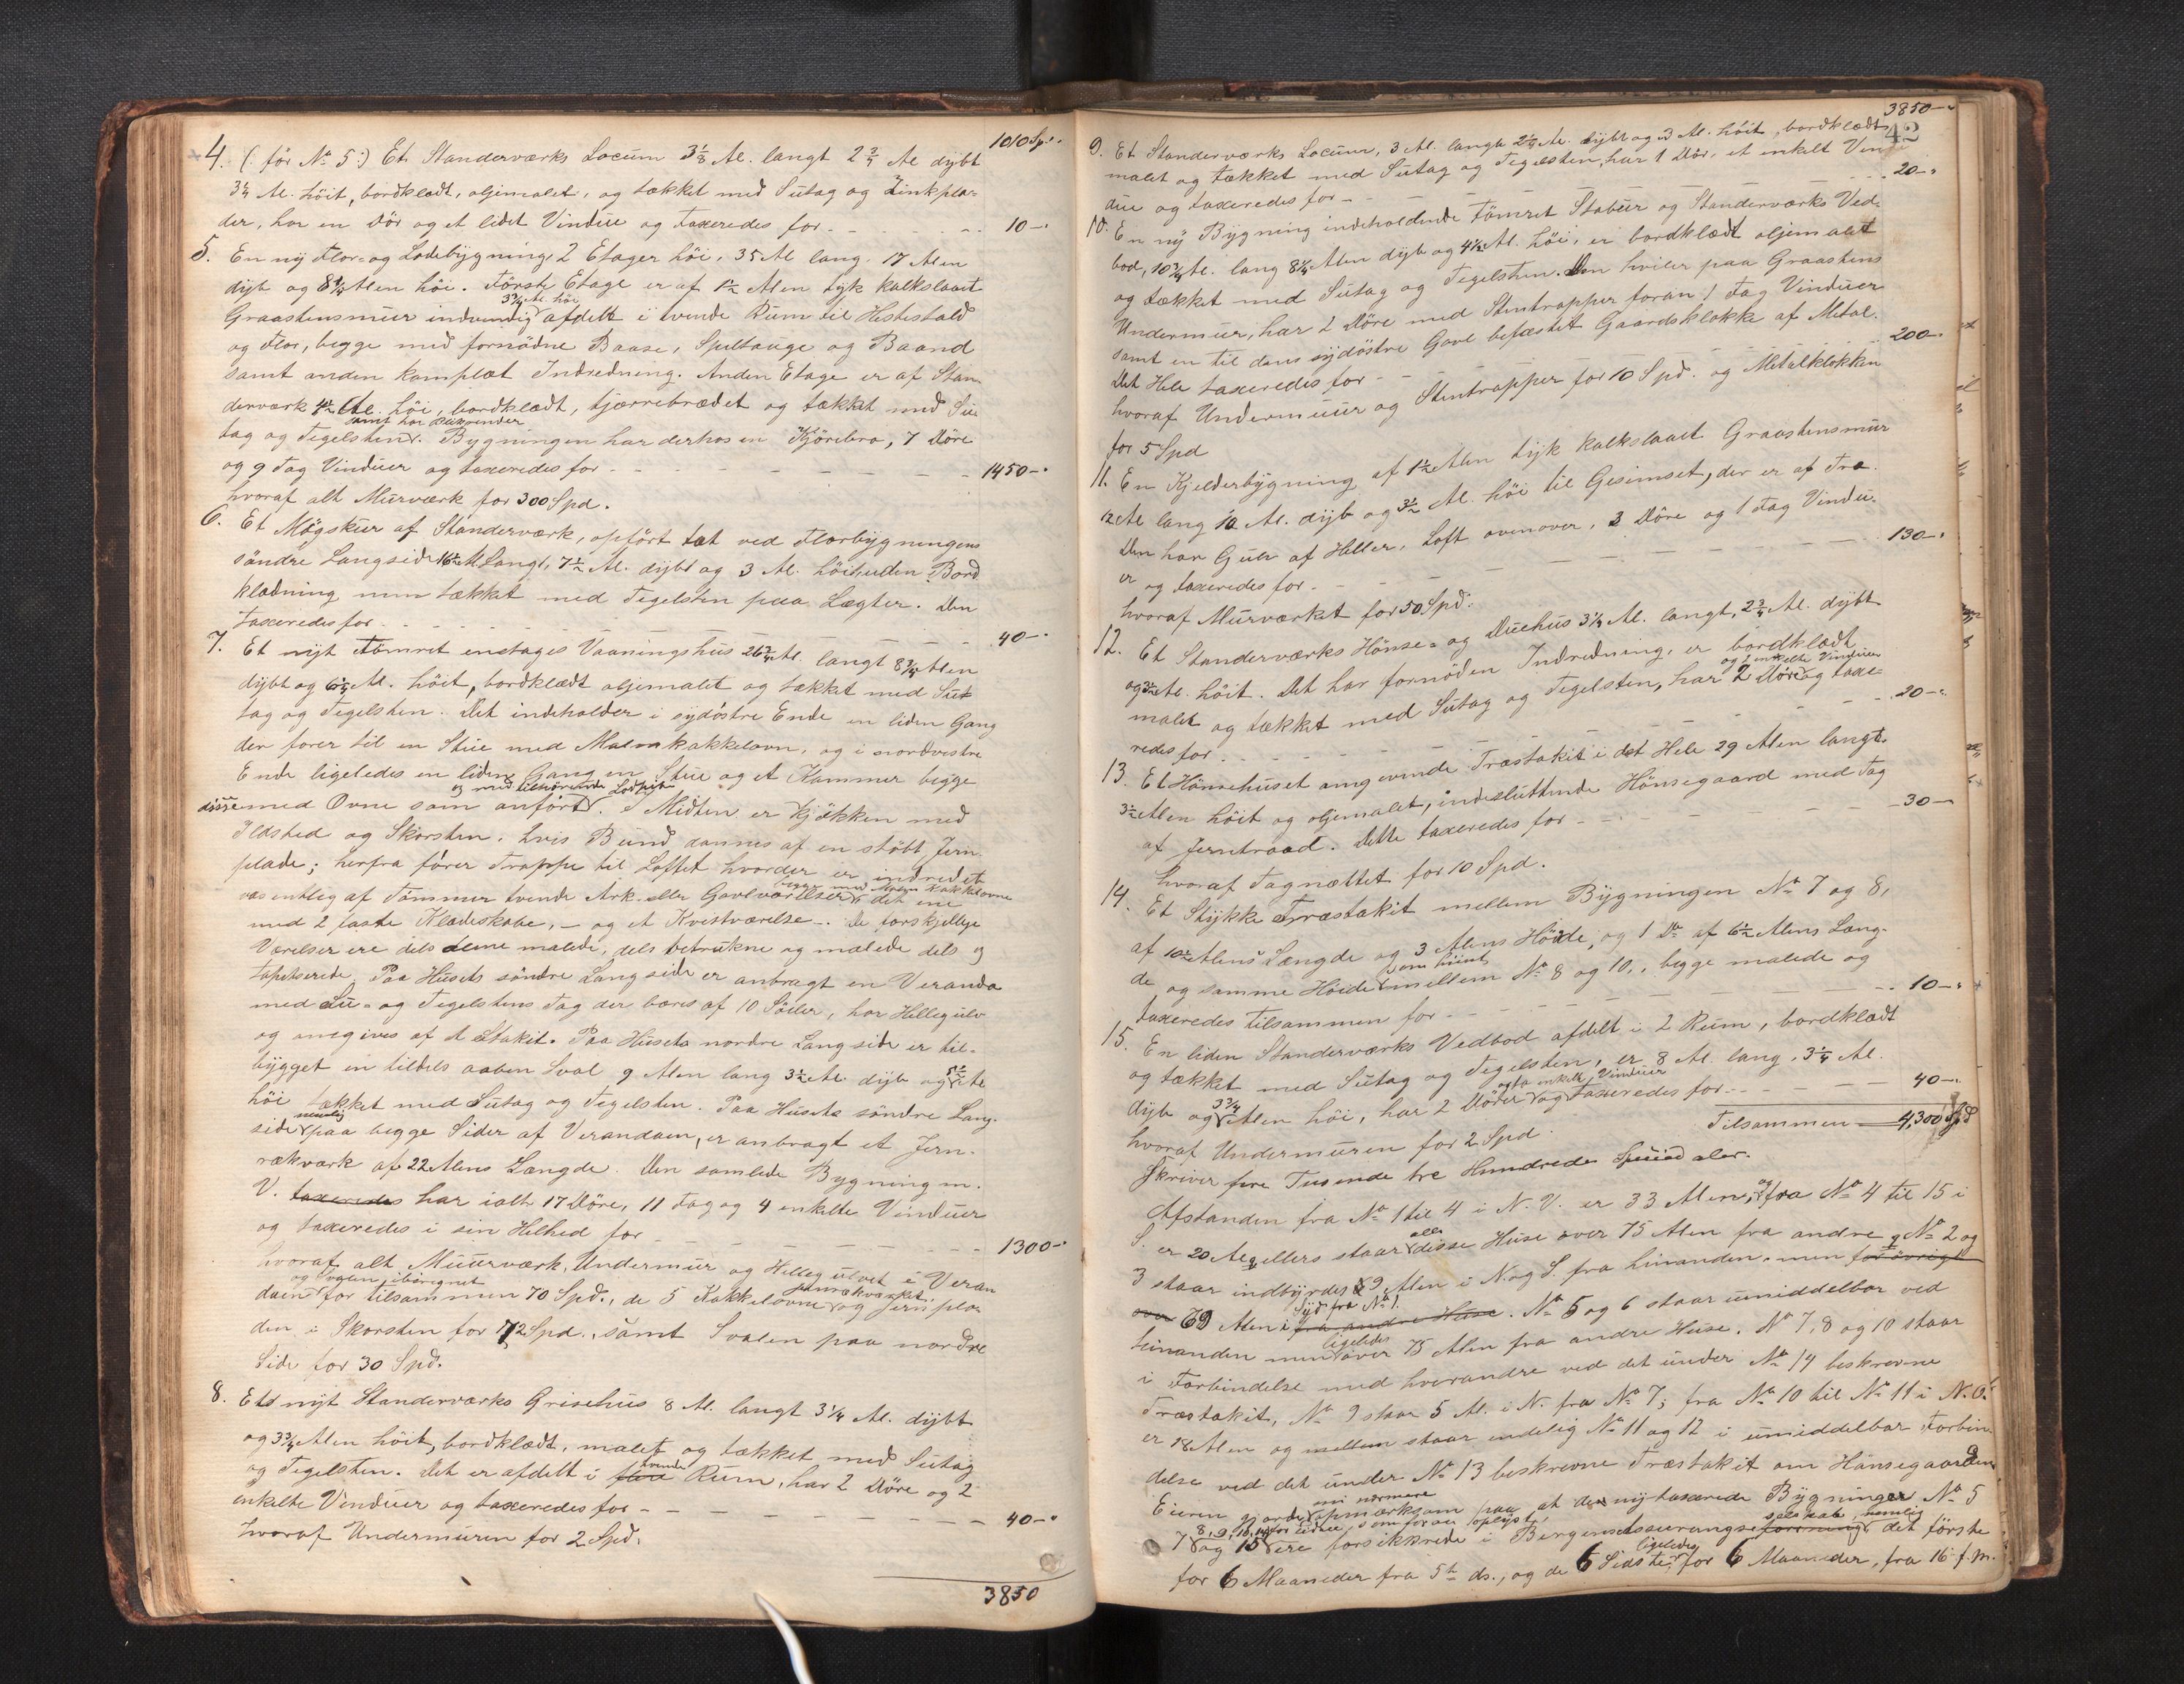 1010 Sp.
4. (: för No 5:) Et Standerværks Locum 3 1/8 Al. langt 2 3/4 Al dybt
3 1/4 Al. höit, bordklædt, oljemalet, og tækket med Sutag og Zinkpla-
der, har en Dör og et lidet Vindue og taxeredes for - - - 10 -
5. En ny Flor- og Ladebygning, 2 Etager höi, 35 Al lang. 17 Alen
dyb og 8 1/4 Alen höi. Første Etage er af 1 1/2 Alen tyk kalkslaaet
Graastensmuur indvendig 3 3/4 Al. höi afdelt i tvende Rum til Hestestald
og Flor, begge med fornödne Baase, Speltauge og Baand
samt anden komplet Indredning. Anden Etage er af Stan
derværk 4 1/2 Al. höi, bordklædt, tjærrebrædet og tækket med Su
tag og Tegelsten. Bygningen har derhos en Kjörebro, 7 Döre
og 9 Fag Vinduer og taxeredes for - - - 1450 -
hvoraf alt Murværk for 300 Spd.
6. Et Mögskur af Standerværk, opfört tæt ved Florbygningens
söndre Langside 16 1/2 Al Langt, 7 1/2 Al. dybt og 3 Al. höit, uden Bord
klædning men tækket med Tegelsten paa Lægter. Den
taxeredes for - - - 40 -
7. Et nyt tömret enetages Vaaningshus 26 3/4 Al. langt 8 3/4 Alen
dybt og 6 1/4 Al. höit, bordklædt oljemalet og tækket med Su
tag og Tegelsten. Det indeholder i sydöstre Ende en liden Gang
der förer til en Stue med Kakkelovn, og i nordvestre
Ende ligeledes en liden Gang en Stue og et Kammer begge
disse med Ovne som anfört og med tilhörende. I Midten er Kjökken med
Ildsted og Skorsten, hvis Bund dannes af en stöbt Jern
plade; herfra förer Trappe til Loftet hvorder er indredet
væsentlig af Tömmer tvende Ark- eller Gavlværelser begge med Kakkelovne det ene
med 2 faste Klædeskabe, - og et Kvistværelse -. De forskjellige
Værelser ere dels malede, dels betrukne og malede dels og
tapetserede. Paa Husets söndre Langside er anbragt en Veranda
med Su- og Tegelstens Tag der bæres af 10 Söiler, har Hellegulv
og omgives af et Stakit. Paa Husets nordre Langside er til-
bygget en tildels aaben Sval 9 Alen lang 3 1/2 Al. dyb og Al
höi tækket med Sutag og Tegelsten. Paa Husets söndre Lang-
side nemlig paa begge Sider af Verandaen, er anbragt et Jern-
rækværk af 22 Alens Længde. Den samlede Bygning m.
V. taxeredes har ialt 17 Döre, 11 Fag og 4 enkelte Vinduer
og taxeredes i sin Helhed for - - - 1300 -
hvoraf alt Muurværk, Undermur og Hellegulvet i Veran
daen og Svalen for tilsammen 70 Spd., de 5 Kakkelovne Jernrækværket og Jernpla
den i Skorsten for 72 Spd., samt Svalen paa nordre
Side for 30 Spd.
8. Et nyt Standerværks Grisehus 8 Al. langt 3 1/4 Al. dybt
og 3 3/4 Alen höit, bordklædt, malet og tækket med Sutag
og Tegelsten. Det er afdelt i tvende Rum, har 2 Döre og 2
enkelte Vinduer og taxeredes for - - - 40 -
hvoraf Undermuren for 2 Spd.
3850
3850 -
42
9. Et Standerværks Locum, 3 Al. langt 2 1/4 Al. dybt og 3 Al. höit, bordklædt
malet og tækket med Sutag og Tegelsten, har 1 Dör, et enkelt Vin
due og taxeredes for - - - 20 -
10. En ny Bygning indeholdende tömret Stabur og Standerværks Ved-
bod, 10 3/4 Al. lang 8 1/4 Alen dyb og 4 1/2 Al. höi, er bordklædt oljemalet
og tækket med Sutag og Tegelsten. Den hviler paa Graastens
Undermur, har 2 Döre med Stentrapper foran 1 Fag Vinduer
samt en til dens sydöstre Gavl befæstet Gaardsklokke af Metal.
Det Hele taxeredes for - - - 200 -
hvoraf Undermuur og Stentrapper for 10 Spd. og Metalklokken
for 5 Spd
11. En Kjelderbygning af 1 1/2 Alen tyk kalkslaaet Graastensmur
12 Al lang 10 Al. dyb og 3 1/2 Al. höi til Gesimset, der er af Træ.
Den har Gulv af Heller, Loft ovenover, 3 Döre og 1 Fag Vindu-
er og taxeredes for - - - 130 -
hvoraf Murværket for 50 Spd.
12. Et Standerværks Hönse- og Duehus 3 1/4 Al. langt, 2 3/4 Al. dybt
og 3 1/2 Al. höit. Det har fornöden Indredning, er bordklædt
malet og tækket med Sutag og Tegelsten, har 2 Döre og 1 enkelte Vinduer og taxe-
redes for - - - 20 -
13. Et Hönsehuset omgivende Træstakit i det Hele 29 Alen langt.
3 1/2 Alen höit og oljemalet, indesluttende Hönsegaard med Tag
af Jerntraad. Dette taxeredes for - - - 30 -
hvoraf Tagnættet for 10 Spd.
14. Et Stykke Træstakit mellem Bygningen No 7 og 8,
af 10 1/2 Alens Længde og 3 Alens Höide, og 1 Do af 6 1/2 Alens Læng-
de og samme Höide som hiint mellem No 8 og 10, begge malede og
taxeredes tilsammen for - - - 10 -
15. En liden Standerværks Vedbod afdelt i 2 Rum, bordklædt
og tækket med Sutag og Tegelsten, er 8 Al. lang, 3 1/4 Al.
dyb og 3 3/4 Alen höi, har 2 Dörer og to enkelte Vinduer og taxeredes for - - - 40 -
Tilsammen 4,300 Spd
hvoraf Undermuren for 2 Spd.
Skriver fire Tusende tre Hundrede Speciedaler.
Afstanden fra No 1 til 4 i N. V. er 33 Alen, og fra No 4 til 15 i
S. er 20 Al, ellers staar alle disse Huse over 75 Alen fra andre, No 2 og
3 staar indbyrdes 9 Alen i N. og S. fra hinanden, men for övrigt
over 69 Alen i Syd fra No 1. fra andre Huse. No 5 og 6 staar umiddelbar ved
hinanden men ligeledes over 75 Alen fra andre Huse. No 7, 8 og 10 staar
i Forbindelse med hverandre ved det under No 14 beskrevne
Træstakit, No 9 staar 5 Al. i N. fra No 7; fra No 10 til No 11 i N. O.
er 18 Alen og mellem staar endelig No 11 og 12 i umiddelbar Forbin
delse ved det under No 13 beskrevne Træstakit om Hönsegaarden
Eieren gjorde opmærksom paa, at de ny taxerede Bygninger No 5
7, 8, 9, 10, og 15 ere forsikkrede i Bergens Assuranceforening selskab, nemlig det förste
for 6 Maaneder fra 5te ds., og de 6 Sidste ligeledes for 6 Maaneder, fra 16 f. M.